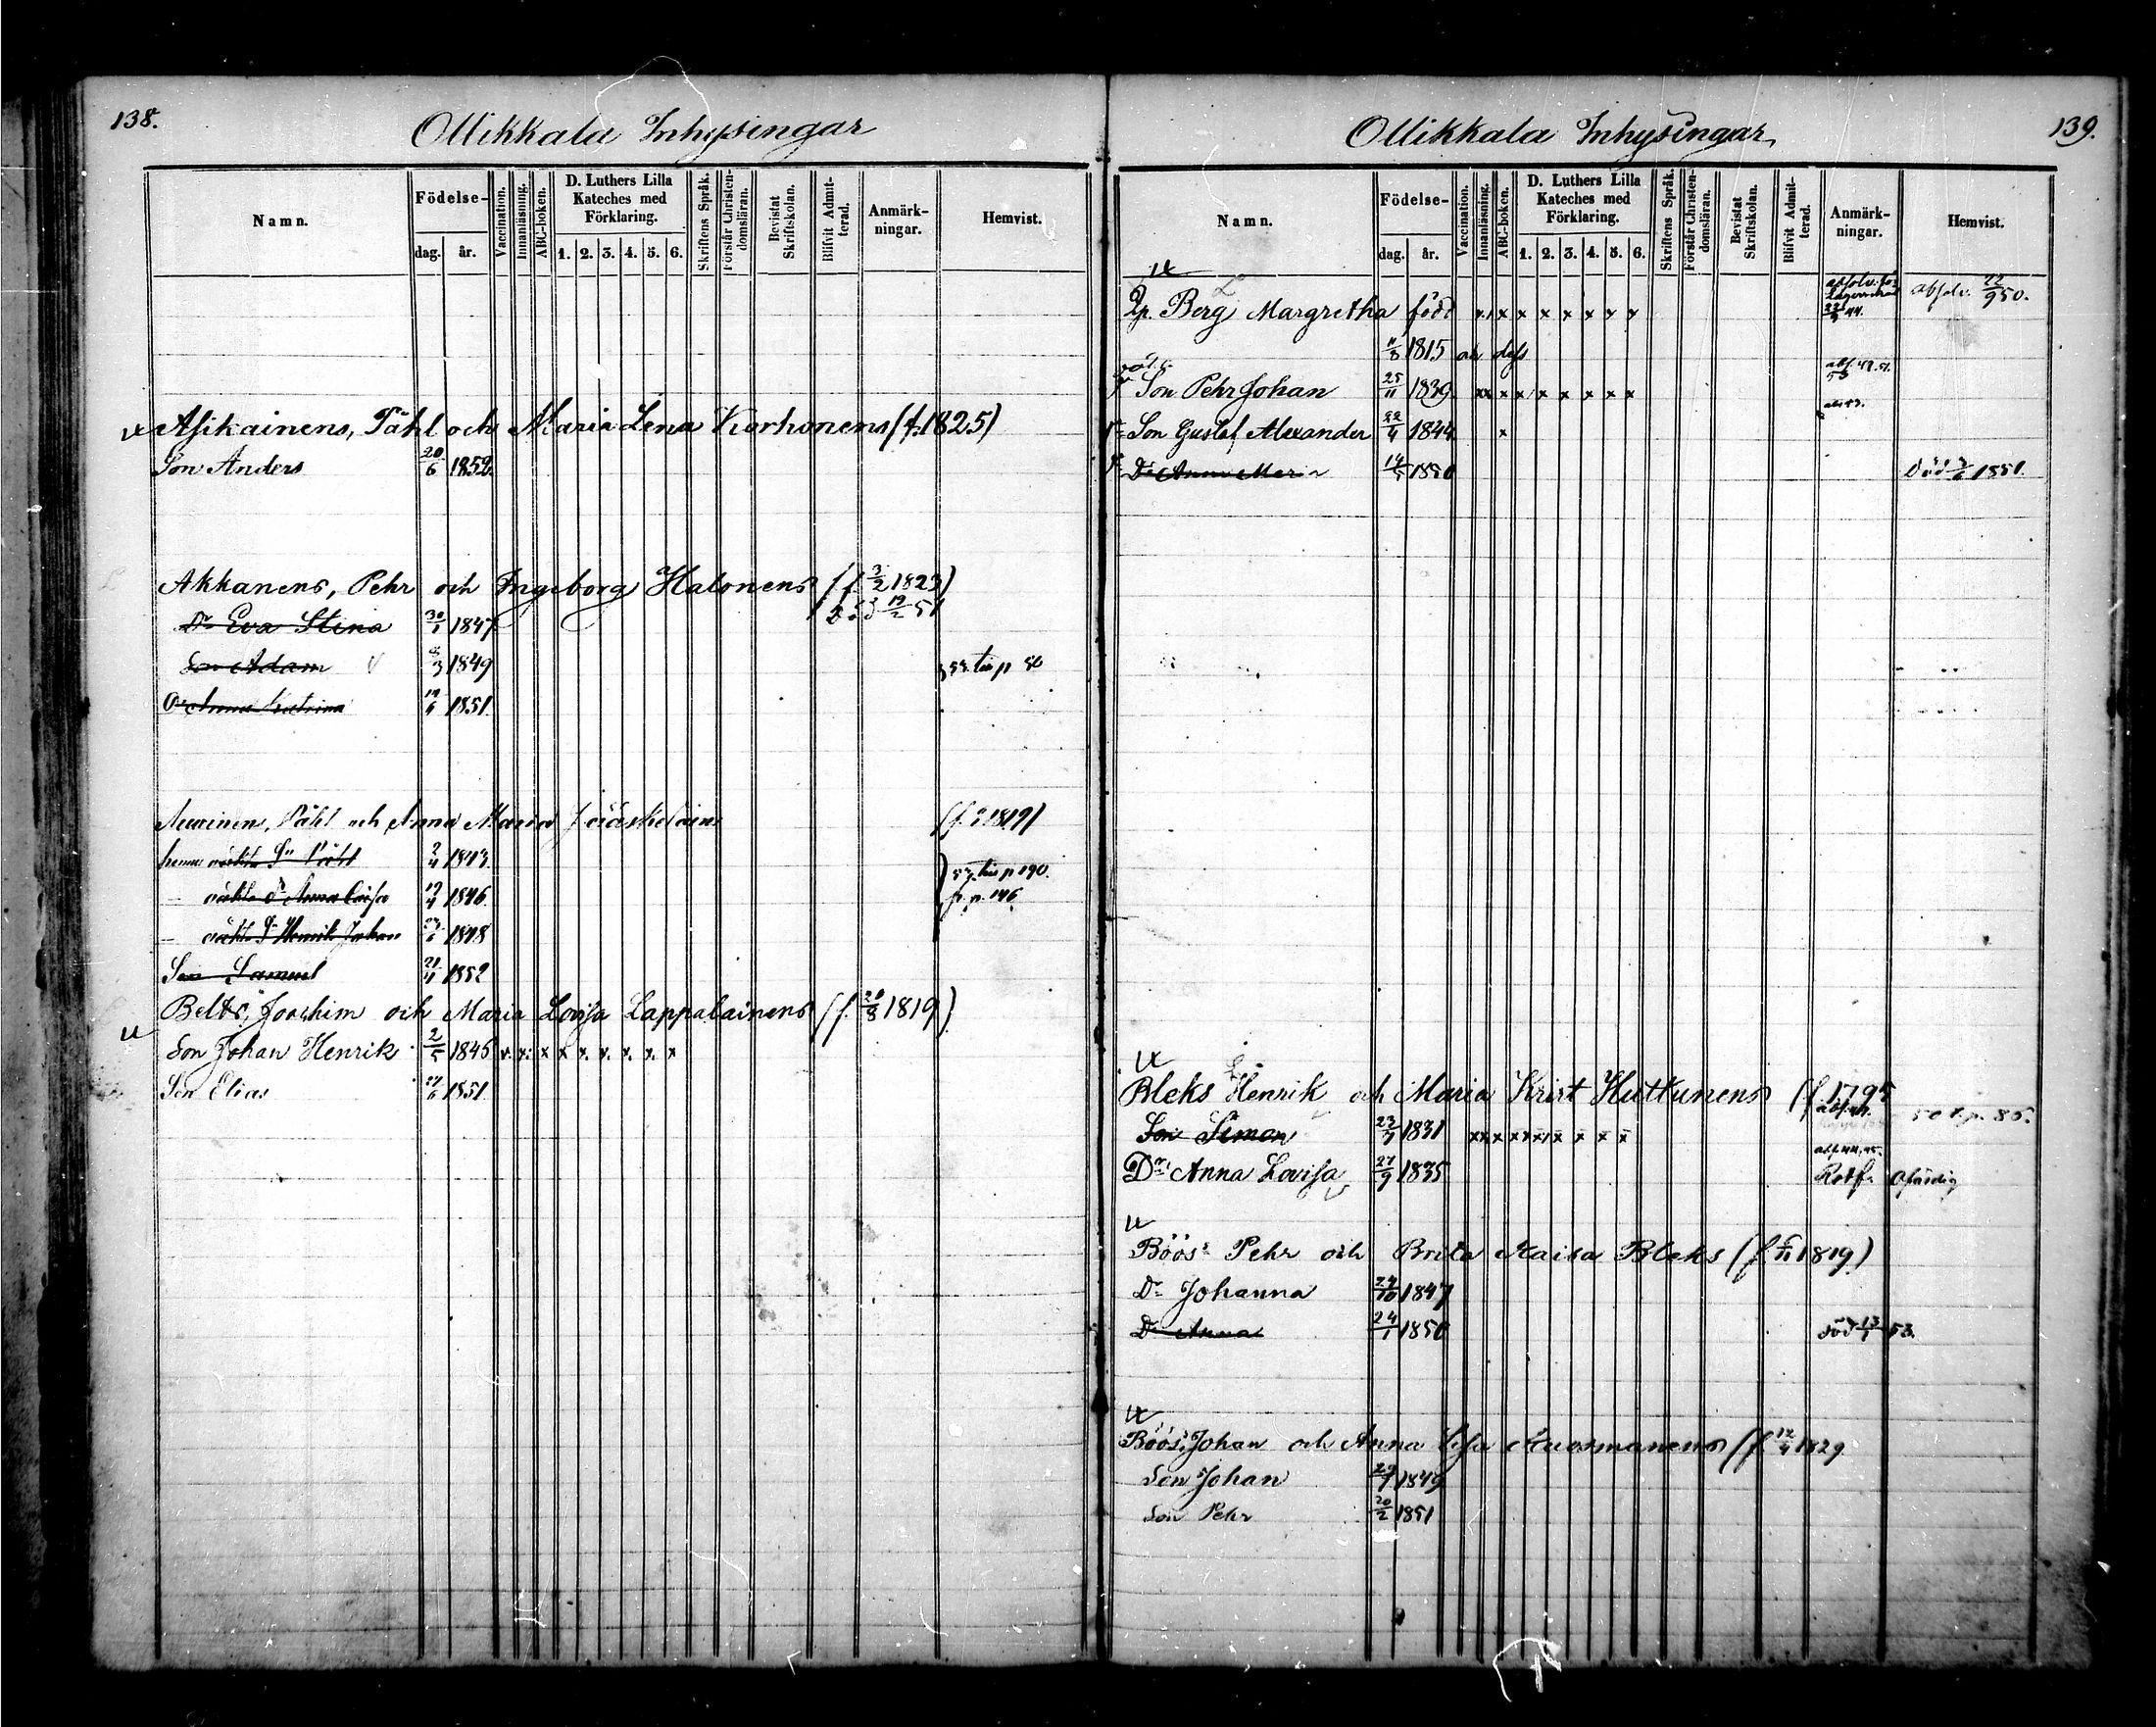 138.
Ollikkala Inhysingar
Namn.
Födelse-
dag. år.
Vaccination.
Innanläsning.
ABC-boken.
D. Luthers Lilla Kateches med Förklaring.
1. 2. 3. 4. 5. 6.
Skriftens Språk.
Förstår Christendomsläran.
Bevistat Skriftskolan.
Blifvit Admitterad.
Anmärkningar.
Hemvist.
Asikainens, Påhl och Maria Lena Korhonens (f. 1825)
Son Anders 20/6 1852.
Akkanens, Pehr och Ingeborg Halonens (f. 3/2 1823)
död 19/2 51
Dr Eva Stina 30/1 1847
Son Adam 8/3 1849 53. tis p 50
Dr Anna Katrina 19/6 1851.
Påhl och Anna Maria (f. 1819)
hennes oäkta Sn Påhl 2/4 1843.
oäkta dr Anna Caisa 19/4 1846. 57. tis p 190.
fr. p. 146.
oäkta Sn Henrik Johan 1848
Son Samuel 21/4 1852
Belts, Joachim och Maria Lovisa Lappalainens (f. 28/3 1819)
Son Johan Henrik 2/5 1845 x x x x x x x x x
Son Elias 27/6 1851.
139.
Ollikkala Inhysingar
Namn.
Födelse-
dag. år.
Vaccination.
Innanläsning.
ABC-boken.
D. Luthers Lilla Kateches med Förklaring.
1. 2. 3. 4. 5. 6.
Skriftens Språk.
Förstår Christendomsläran.
Bevistat Skriftskolan.
Blifvit Admitterad.
Anmärkningar.
Hemvist.
Qp. Berg Margretha född x x x x x x x x absolv. 22/9 50.
11/3 1815 och dess
Son Pehr Johan 25/11 1839. xx x x x x x x x
Son Gustaf Alexander 22/4 1844 x
Dr Anna Maria 14/5 1850 Död 1851.
Bleks Henrik och Maria Krist Huttunens (f. 1795
Son Simon 23/3 1831 50 t. p. 85.
Dr Anna Lovisa 27/9 1835 Rotf. Ofärdig
Böös Pehr och Brita Kaisa Bleks (f. 6/11 1819)
Dr Johanna 24/10 1847
Dr Anna 24/1 1850 död 13/1 53.
Böös, Johan och Anna Lisa Kuosmanens (f. 12/4 1829
Son Johan 29/1 1849
Son Pehr 20/2 1851